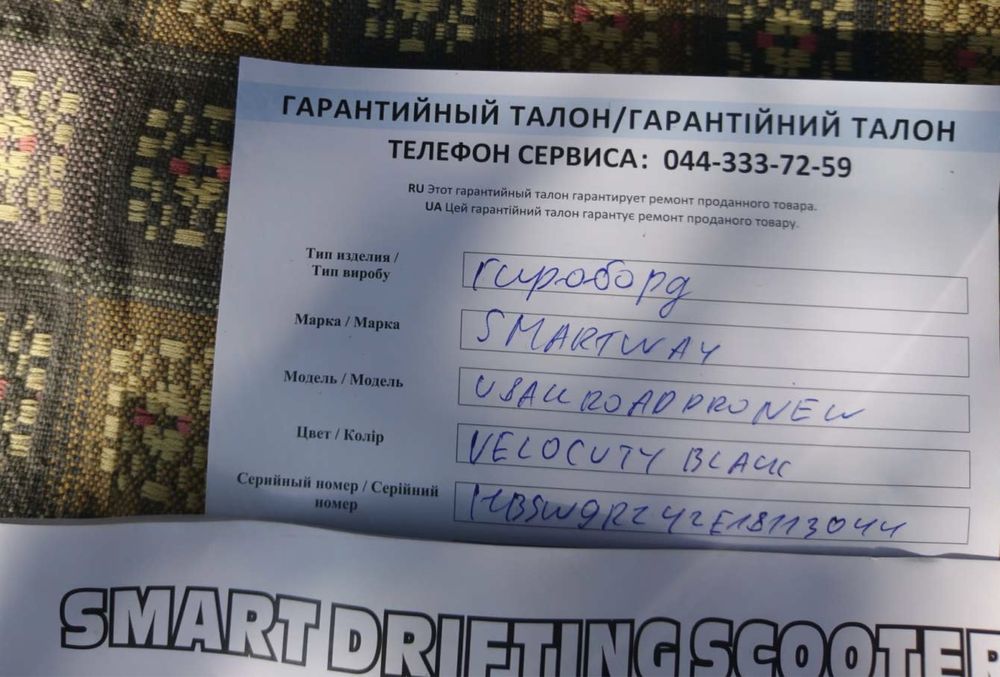 ГАРАНТИЙНЫЙ ТАЛОН/ГАРАНТІЙНИЙ ТАЛОН
ТЕЛЕФОН СЕРВИСА: 044-333-72-59
RU Этот гарантийный талон гарантирует ремонт проданного товара.
UA Цей гарантійний талон гарантує ремонт проданого товару.
Тип изделия /
Тип виробу
гироборд
Марка / Марка
SMARTWAY
Модель / Модель
ROAD PRO NEW
Цвет / Колір
VELOCUTY BLACK
Серийный номер / Серійний
номер
SMART DRIFTING SCOOTER